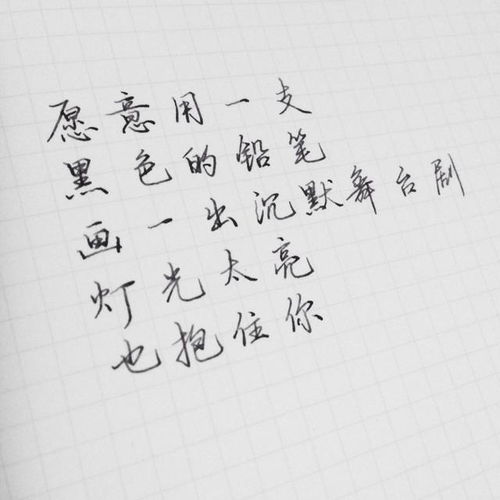 愿意用一支
黑色的铅笔
画一出沉默舞台剧
灯光太亮
也抱住你